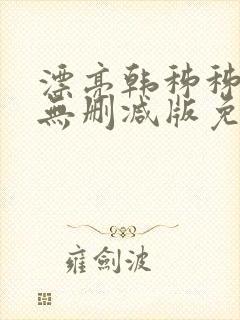 漂亮韩秭秭
無删减版免
雍劍波